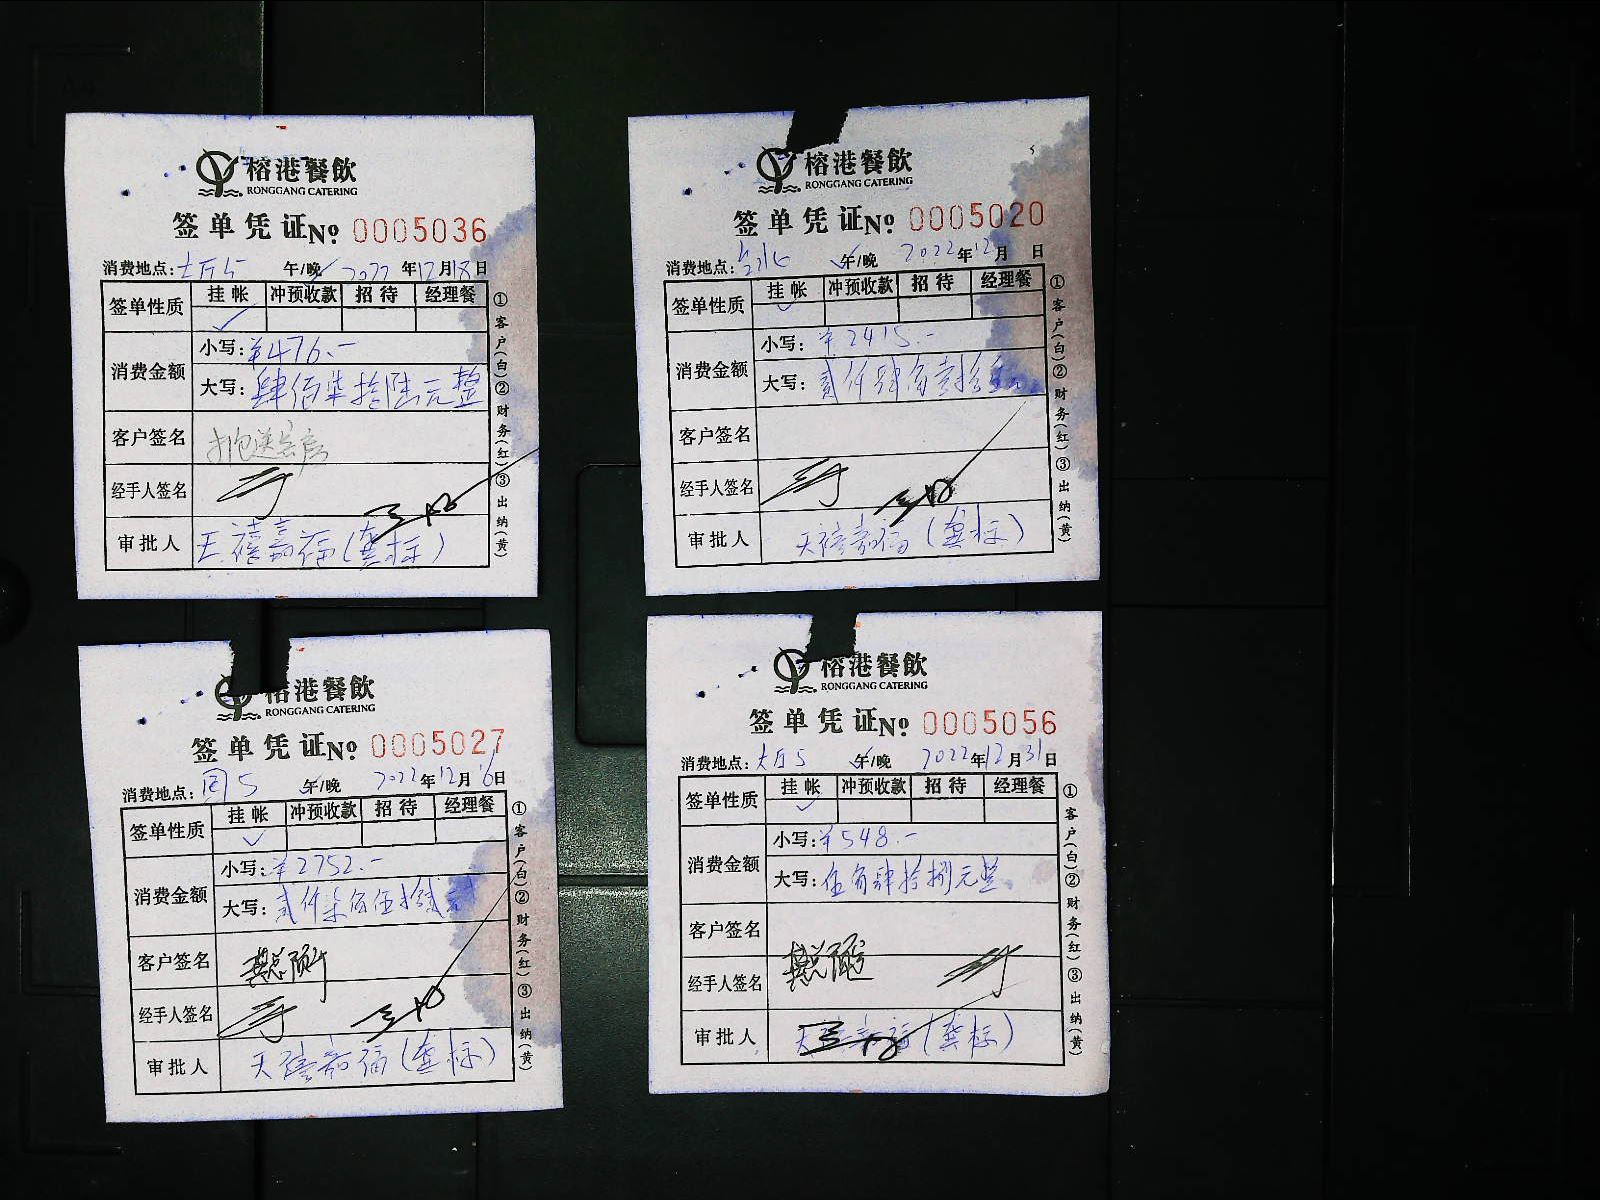 榕港餐飲
RONGGANG CATERING
签单凭证 No. 0005036
消费地点：大厅5 午/晚 2022年12月18日
签单性质 挂帐 冲预收款 招待 经理餐
消费金额 小写：¥476.-
大写：肆佰柒拾陆元整
客户签名
经手人签名
审批人 天禧嘉福（龚标）
①客户(白)②财务(红)③出纳(黄)
榕港餐飲
RONGGANG CATERING
签单凭证 No. 0005020
消费地点： 午/晚 2022年12月 日
签单性质 挂帐 冲预收款 招待 经理餐
消费金额 小写：¥2415.-
大写：贰仟肆佰壹拾伍元
客户签名
经手人签名
审批人 天禧嘉福（龚标）
①客户(白)②财务(红)③出纳(黄)
榕港餐飲
RONGGANG CATERING
签单凭证 No. 0005027
消费地点： 午/晚 2022年12月16日
签单性质 挂帐 冲预收款 招待 经理餐
消费金额 小写：¥2752.-
大写：贰仟柒佰伍拾贰元
客户签名
经手人签名
审批人 天禧嘉福（龚标）
①客户(白)②财务(红)③出纳(黄)
榕港餐飲
RONGGANG CATERING
签单凭证 No. 0005056
消费地点：大厅5 午/晚 2022年12月31日
签单性质 挂帐 冲预收款 招待 经理餐
消费金额 小写：¥548.-
大写：伍佰肆拾捌元整
客户签名
经手人签名
审批人 天禧嘉福（龚标）
①客户(白)②财务(红)③出纳(黄)